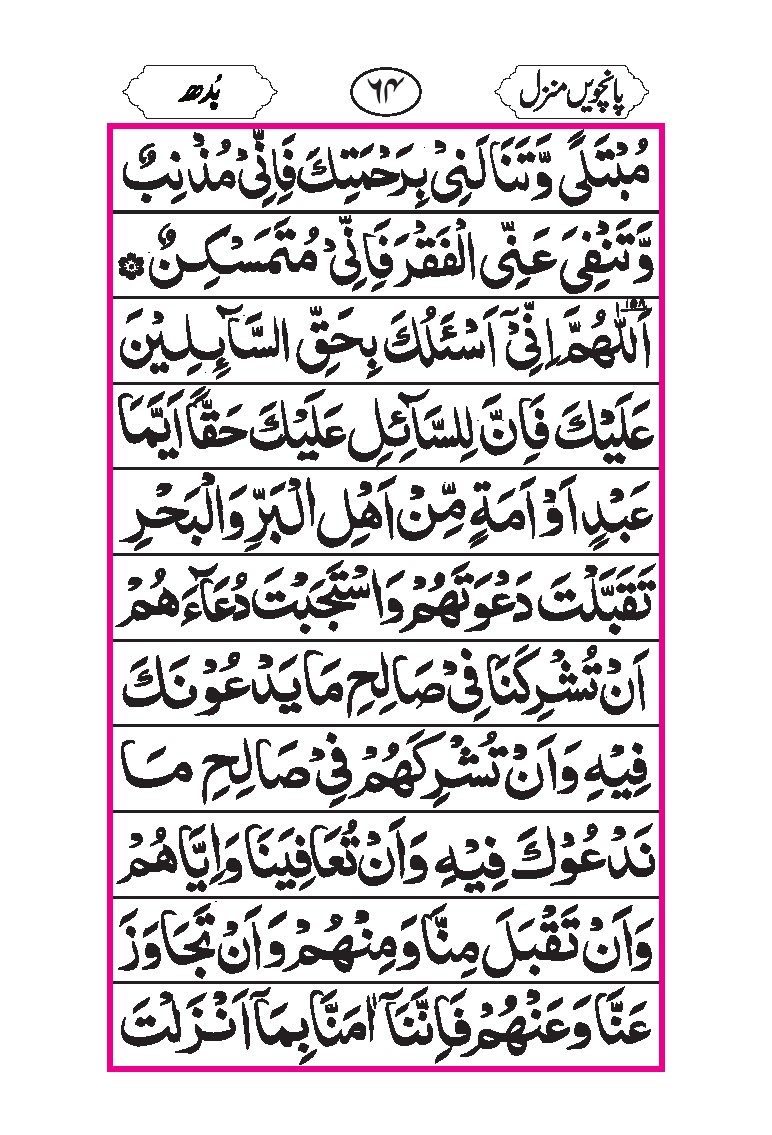 پانچویں منزل ۶۴ بُدھ
مُبْتَلًى وَّتَنَالَنِیْ بِرَحْمَتِكَ فَاِنِّیْ مُذْنِبٌ
وَّتَنْفِیَ عَنِّی الْفَقْرَ فَاِنِّیْ مُتَمَسْكِنٌ
۱۵۸ اَللّٰهُمَّ اِنِّیْٓ اَسْئَلُكَ بِحَقِّ السَّآئِلِیْنَ
عَلَیْكَ فَاِنَّ لِلسَّآئِلِ عَلَیْكَ حَقًّا اَیَّمَا
عَبْدٍ اَوْ اَمَةٍ مِّنْ اَهْلِ الْبَرِّ وَالْبَحْرِ
تَقَبَّلْتَ دَعْوَتَهُمْ وَاسْتَجَبْتَ دُعَآءَهُمْ
اَنْ تُشْرِكَنَا فِیْ صَالِحِ مَا یَدْعُوْنَكَ
فِیْهِ وَاَنْ تُشْرِكَهُمْ فِیْ صَالِحِ مَا
نَدْعُوْكَ فِیْهِ وَاَنْ تُعَافِیَنَا وَاِیَّاهُمْ
وَاَنْ تَقْبَلَ مِنَّا وَمِنْهُمْ وَاَنْ تَجَاوَزَ
عَنَّا وَعَنْهُمْ فَاِنَّنَآ اٰمَنَّا بِمَآ اَنْزَلْتَ